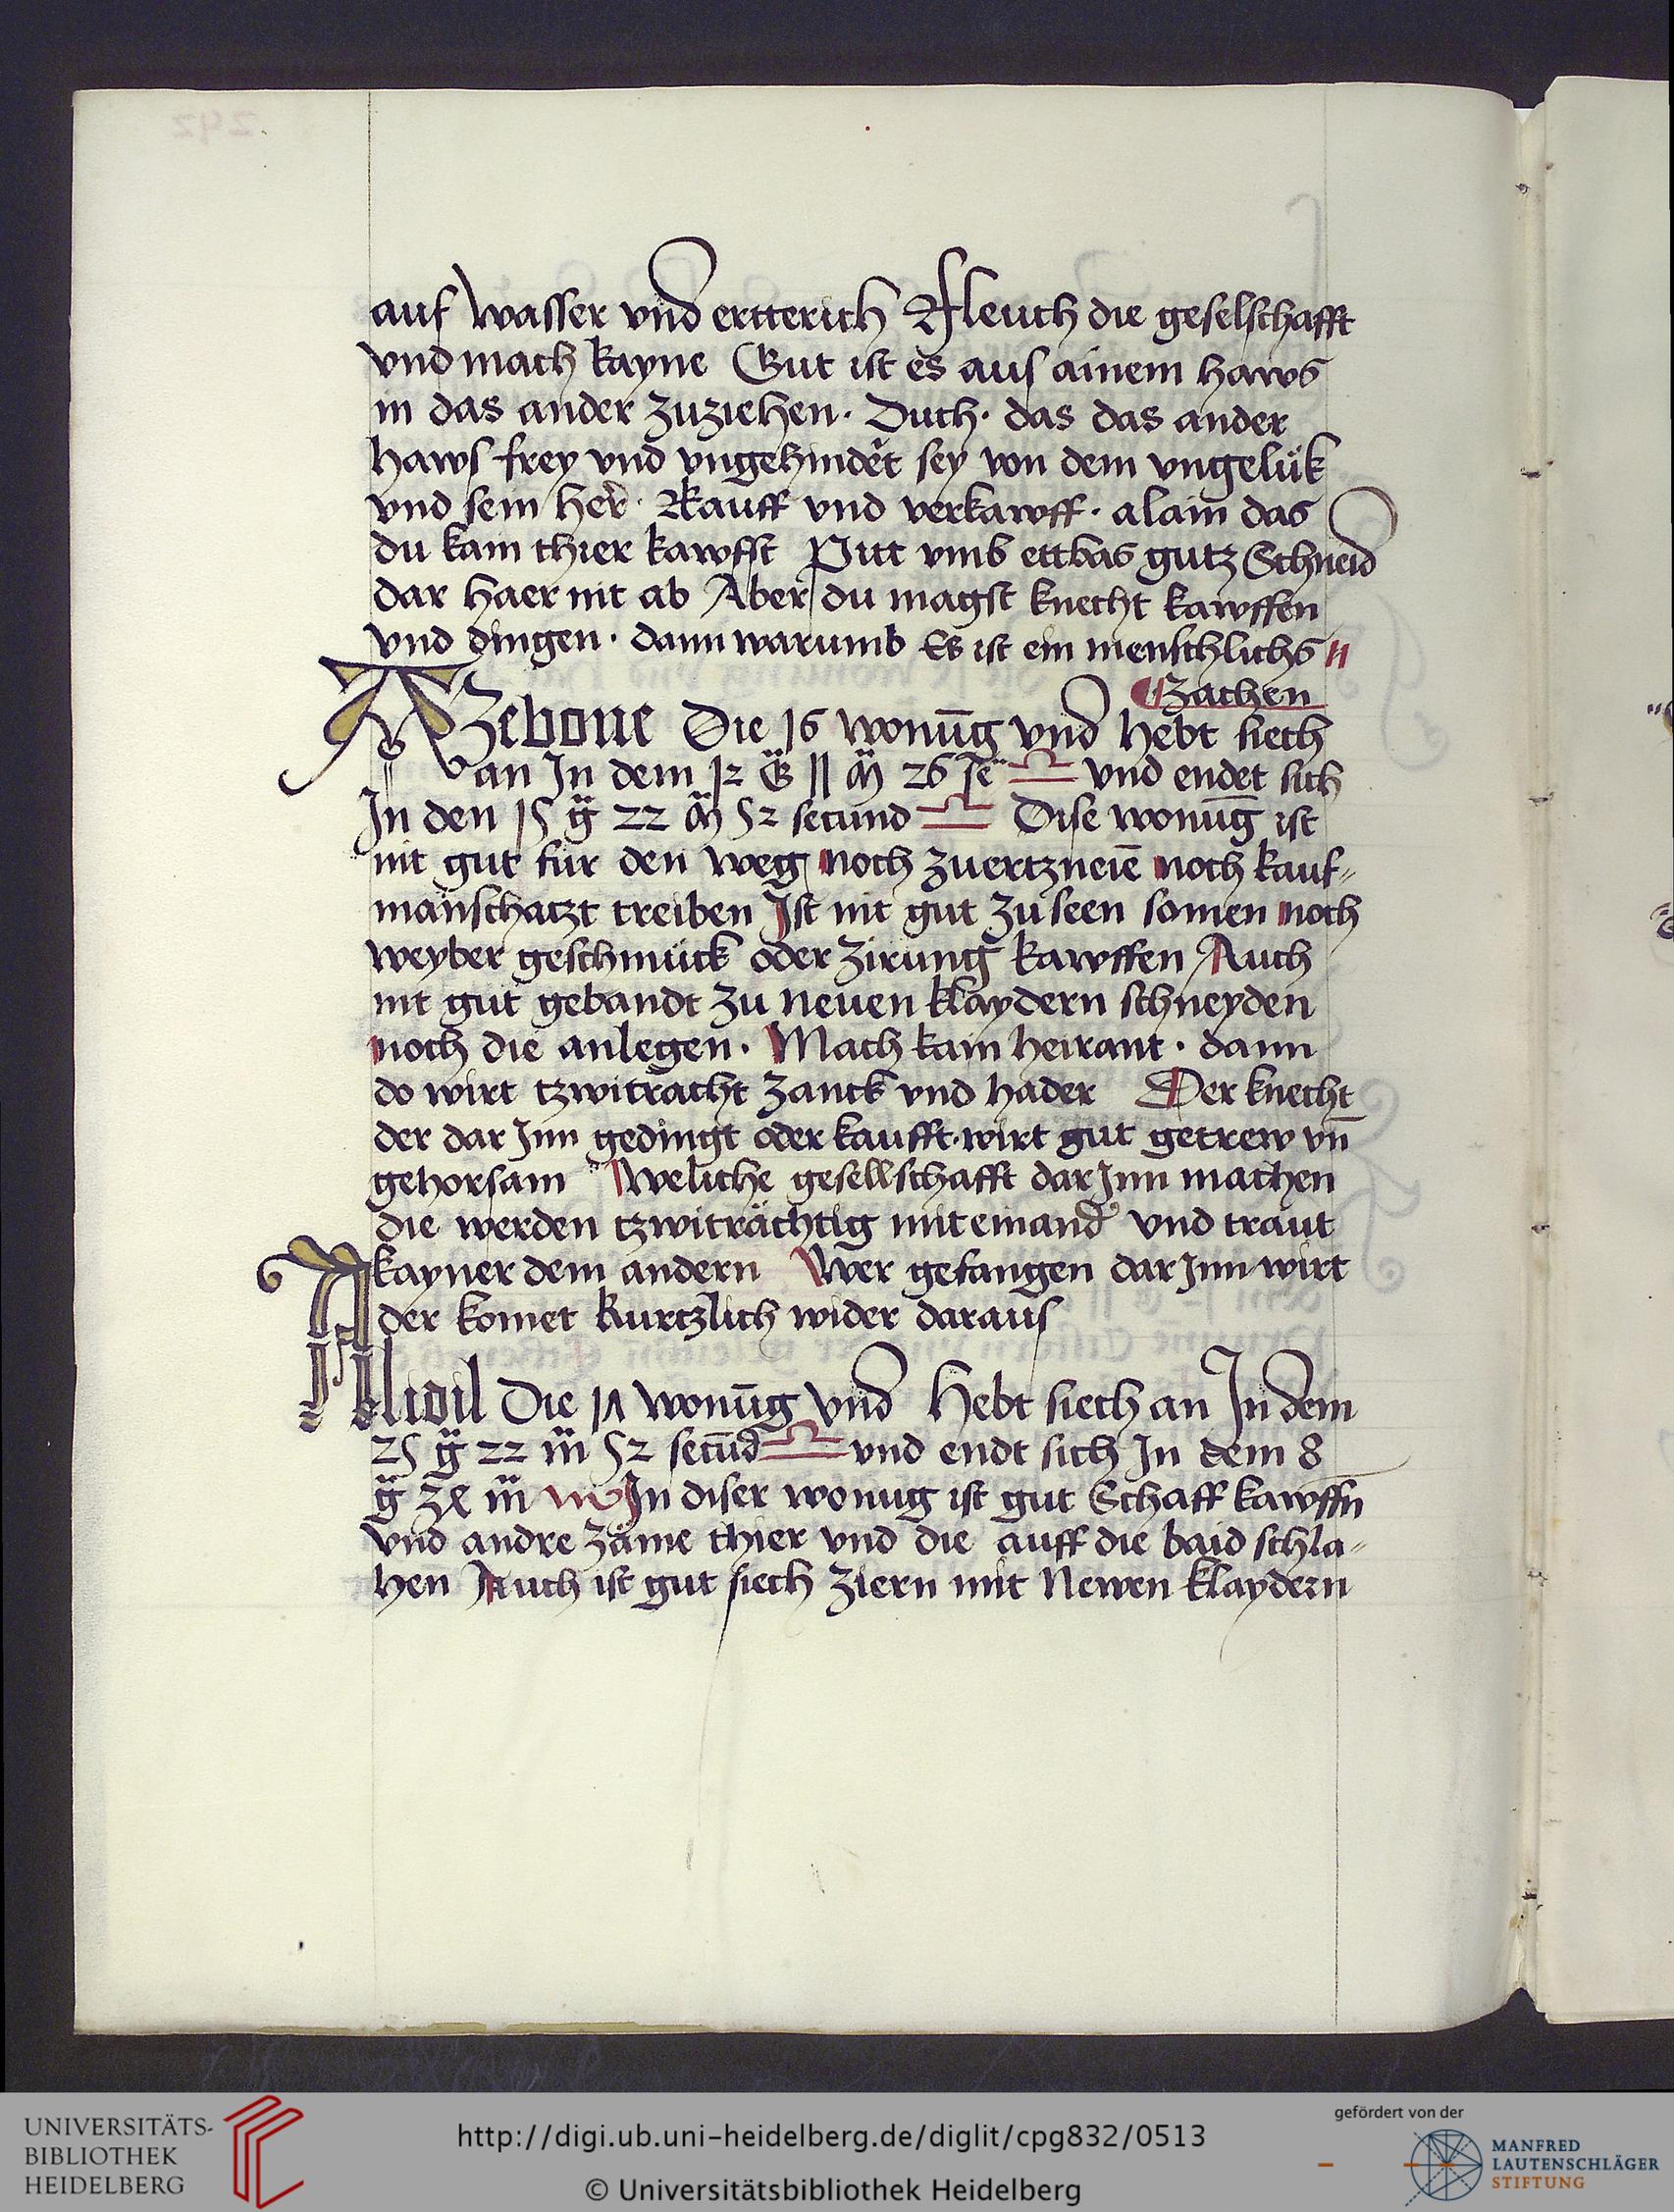 auf wasser vnd ertterich Fleuch die geselschafft
vnd mach kayne Gut ist es aus ainem haws
in das ander zuziehen · Duch · das das ander
haws frey vnd vngehindert sey von dem vngelük
vnd sein her · Kauff vnd verkawff · alain das
du kain thier kawfst Pitt vmb ettbas gutz Schneid
dar haer nit ab Aber du magst knecht kawffen
vnd dingen · dann warumb Es ist ein menschlichs
Zachen
AZebone Die 16 wonūg vnd hebt siech
an In dem 12 G̈ 11 m̈ 26 se ♎ vnd endet sich
In den 15 g̈ 22 m̈ 52 secund ♎ Dise wonūg ist
nit gut für den weg noch zuertzneiē noch kauf-
manschatzt treiben Ist nit gut zu seen somen noch
weyber geschmück oder zirung kawffen Auch
nit gut gebandt zu neuen klaydern schneyden
noch die anlegen · Mach kain heirant · dann
do wirt tzwitracht zanck vnd hader Der knecht
der dar Inn gedingt oder kaufft · wirt gut getrew vn̄
gehorsam Weliche gesellschafft dar Inn machen
die werden tzwiträchtig mit einand vnd traut
kayner dem andern Wer gefangen dar Inn wirt
der komet kurtzlich wider daraus
Alidil Die 17 wonūg vnd Hebt siech an In dem
25 g̈ 22 m̈ 52 secūd ♎ vnd endt sich In dem 8
g̈ m̈ ♏ In diser wonug ist gut Schaff kawffn
vnd andre zäme thier vnd die auff die baid schla-
hen Auch ist gut siech ziern mit Newen klaydern
UNIVERSITÄTS-
BIBLIOTHEK
HEIDELBERG
http://digi.ub.uni-heidelberg.de/diglit/cpg832/0513
© Universitätsbibliothek Heidelberg
gefördert von der
MANFRED
LAUTENSCHLÄGER
STIFTUNG